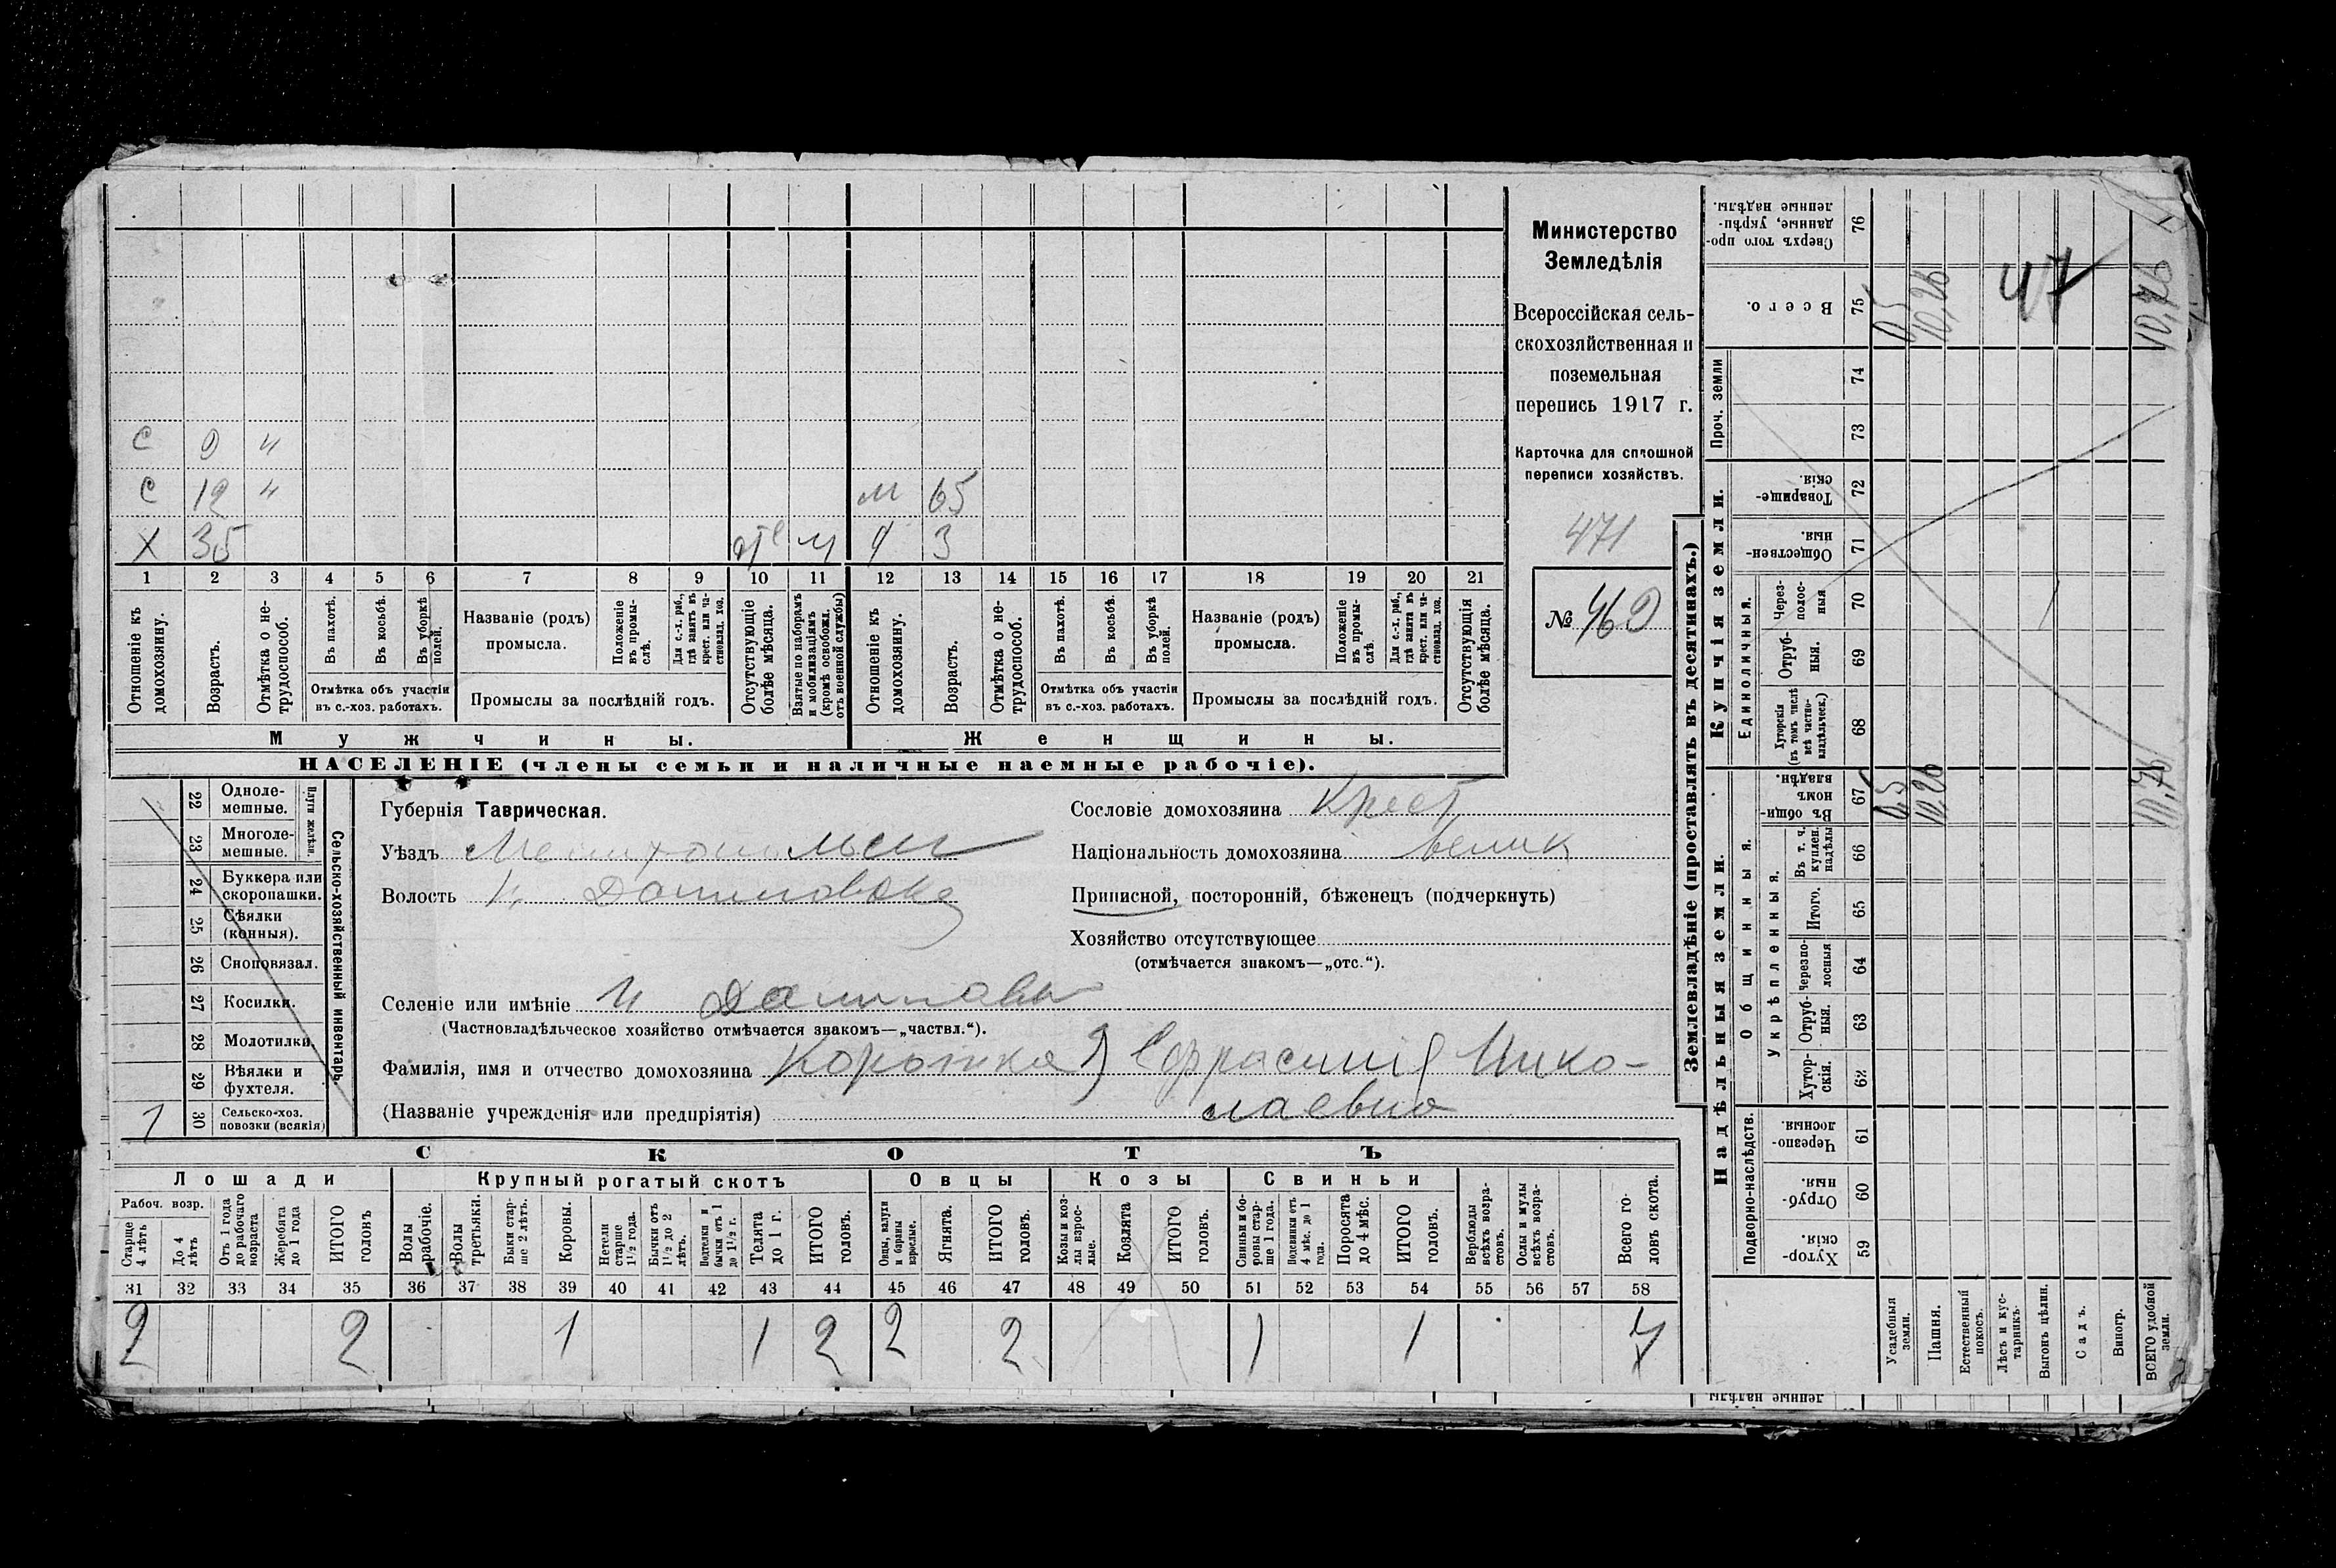 С 9 "
С 12 " М 65
Х 35 Д 3
1 2 3 4 5 6 7 8 9 10 11 12 13 14 15 16 17 18 19 20 21
Отношеніе къ домохозяину.
Возрастъ.
Отмѣтка о нетрудоспособ.
Въ пахотѣ.
Въ косьбѣ.
Въ уборкѣ полей.
Отмѣтка объ участіи въ с.-хоз. работахъ.
Названіе (родъ) промысла.
Положеніе въ промыслѣ.
Для с.-х. раб., гдѣ занятъ въ крест. или частновлад. хоз.
Промыслы за послѣдній годъ.
Отсутствующіе болѣе мѣсяца.
Взятые по наборамъ и мобилизаціямъ (кромѣ освобожд. отъ военной службы)
Отношеніе къ домохозяину.
Возрастъ.
Отмѣтка о нетрудоспособ.
Въ пахотѣ.
Въ косьбѣ.
Въ уборкѣ полей.
Отмѣтка объ участіи въ с.-хоз. работахъ.
Названіе (родъ) промысла.
Положеніе въ промыслѣ.
Для с.-х. раб., гдѣ занята въ крест. или частновлад. хоз.
Промыслы за послѣдній годъ.
Отсутствующія болѣе мѣсяца.
Мужчины. Женщины.
НАСЕЛЕНІЕ (члены семьи и наличные наемные рабочіе).
Министерство
Земледѣлія
Всероссійская сель-
скохозяйственная и
поземельная
перепись 1917 г.
Карточка для сплошной
переписи хозяйствъ.
471
№ 460
Сельско-хозяйственный инвентарь
Плуги желѣзн.
22 Одноле-мешные.
23 Многоле-мешные.
24 Буккера или скоропашки.
25 Сѣялки (конныя).
26 Сноповязал.
27 Косилки.
28 Молотилки.
29 Вѣялки и фухтеля.
30 Сельско-хоз. повозки (всякія) 1
Губернія Таврическая.
Уѣздъ Мелитопольск
Волость
Селеніе или имѣніе
(Частновладѣльческое хозяйство отмѣчается знакомъ—„частвл.“).
Фамилія, имя и отчество домохозяина Нико-
(Названіе учрежденія или предпріятія) лаевна
Сословіе домохозяина Крест
Національность домохозяина велик
Приписной, посторонній, бѣженецъ (подчеркнуть)
Хозяйство отсутствующее
(отмѣчается знакомъ—„отс.“).
СКОТЪ
Лошади Крупный рогатый скотъ Овцы Козы Свиньи
Рабоч. возр.
Старше 4 лѣтъ
До 4 лѣтъ
Отъ 1 года до рабочаго возраста
Жеребята до 1 года
ИТОГО головъ
Волы рабочіе.
Волы третьяки.
Быки старше 2 лѣтъ.
Коровы.
Нетели старше 1½ года.
Бычки отъ 1½ до 2 лѣтъ.
Подтелки и бычки отъ 1 до 1½ г.
Телята до 1 г.
ИТОГО головъ.
Овцы, валухи и бараны взрослые.
Ягнята.
ИТОГО головъ.
Козы и козлы взрослые.
Козлята
ИТОГО головъ.
Свиньи и боровы старше 1 года.
Подсвинки отъ 4 мѣс. до 1 года.
Поросята до 4 мѣс.
ИТОГО головъ.
Верблюды всѣхъ возрастовъ.
Ослы и мулы всѣхъ возрастовъ.
Всего головъ скота.
31 32 33 34 35 36 37 38 39 40 41 42 43 44 45 46 47 48 49 50 51 52 53 54 55 56 57 58
2 2 1 1 2 2 2 1 1 7
Землевладѣніе (проставлять въ десятинахъ.)
Купчія земли.
Надѣльныя земли.
Сверхъ того проданные, укрѣпленные надѣлы. 76
Всего. 75 0,5 10,26 10,76
47
Проч. земли 74 73
Товарищескія. 72
Общественныя. 71
Единоличныя.
Черезполосныя 70
Отрубныя. 69
Хуторскія (въ томъ числѣ всѣ частновладѣльческ.) 68
Общинныя.
Въ общинномъ владѣн. 67 0,5 10,26 10,76
Укрѣпленныя.
Въ т. ч. куплен. надѣлы 66
Итого. 65
Черезполосныя 64
Отрубныя. 63
Хуторскія. 62
Подворно-наслѣдств.
Черезполосныя. 61
Отрубныя. 60
Хуторскія. 59
Усадебныя земли.
Пашня.
Естественный покосъ.
Лѣсъ и кустарникъ.
Выгонъ цѣлин.
Садъ.
Виногр.
ВСЕГО удобной земли.
ленные надѣлы